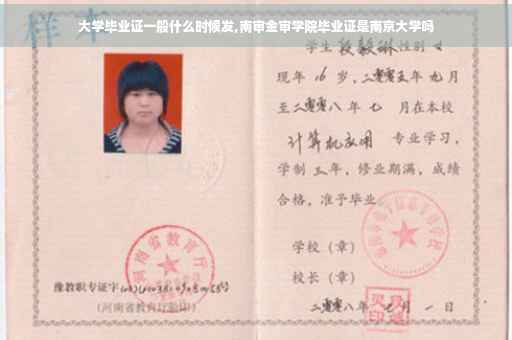 大学毕业证一般什么时候发,南审金审学院毕业证是南京大学吗
样本
学生段毅琳性别女
现年16岁,二零零五年九月
至二零零八年七 月在本校
计算机应用 专业学习,
学制三年,修业期满,成绩
合格,准予毕业
学校(章)
校长(章)
二零零八年七月一日
河南省教育厅
豫教职专证字
(河南省教育厅验印)